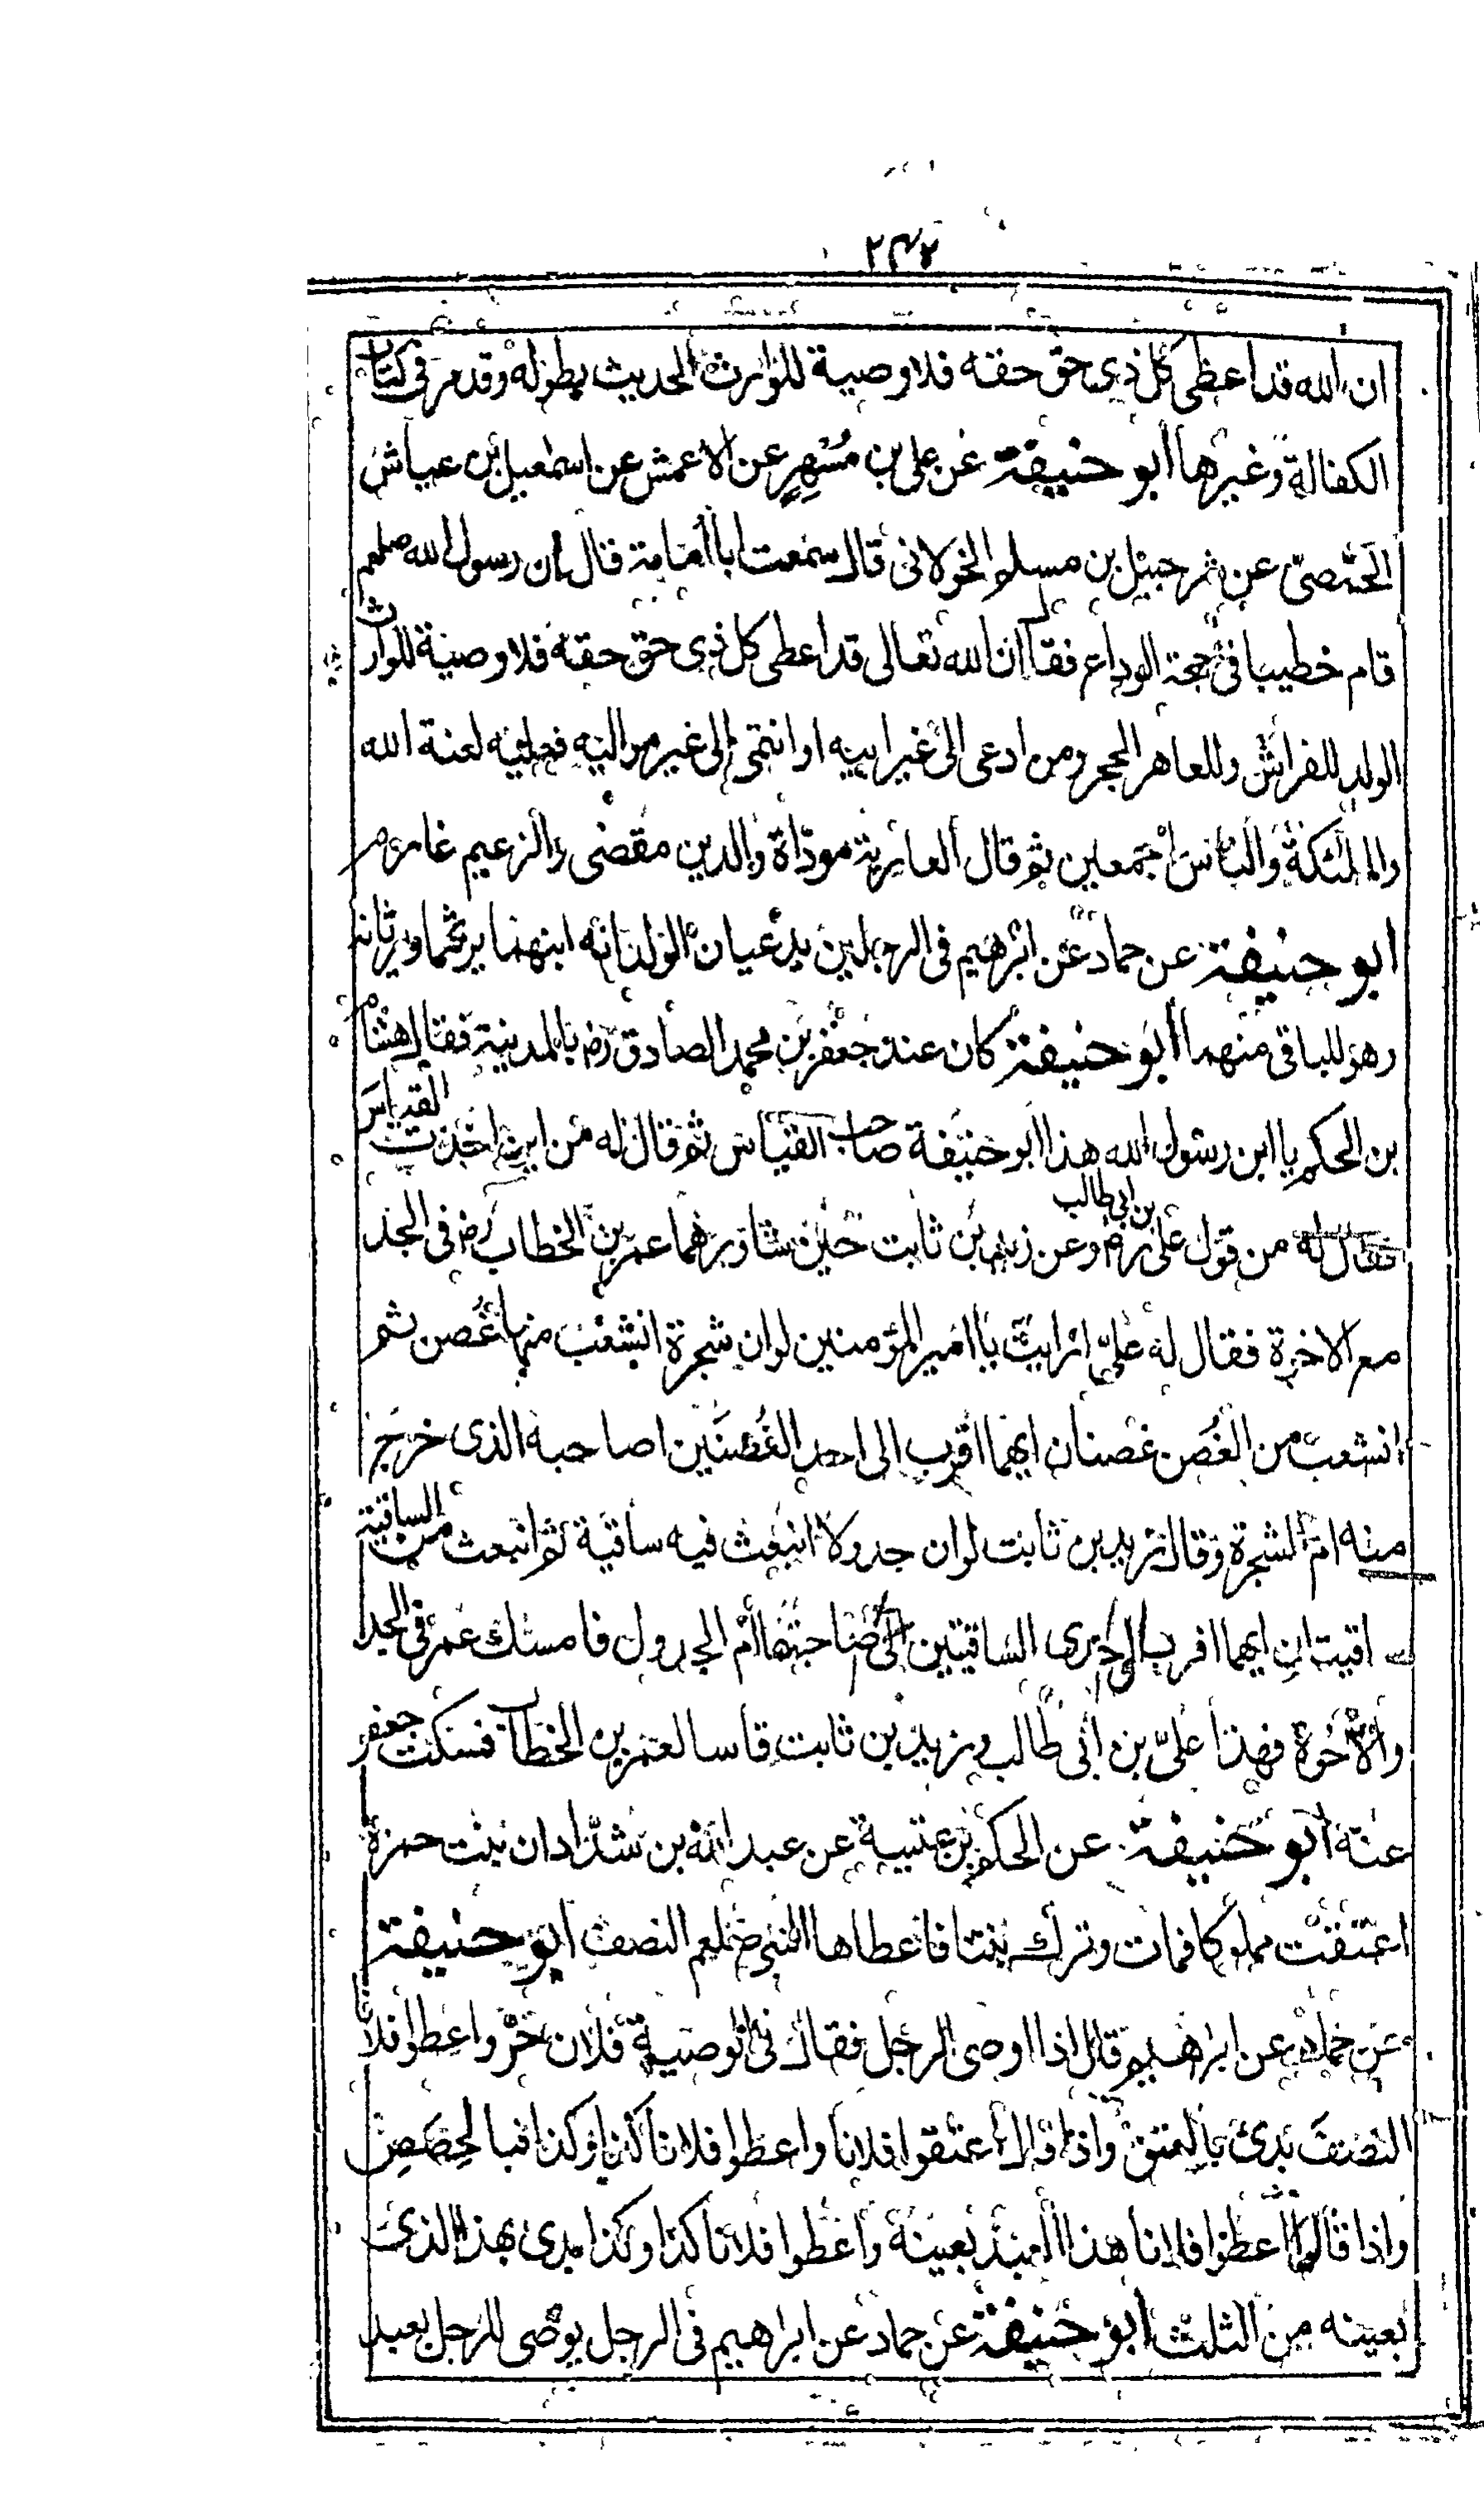 ٢٤٧
ان الله قد اعطى كل ذى حق حقه فلا وصية للوارث الحديث بطوله وقد مر فى كتاب
الكفالة وغيرها ابو حنيفة عن على بن مُسْهِرٍ عن الاعمش عن اسمعيل بن عياش
الحمصىّ عن شرحبيل بن مسلم الخولانى قال سمعت ابا امامة قال ان رسول الله صلعم
قام خطيبا فى حجة الوداع فقال ان الله تعالى قد اعطى كل ذى حق حقه فلا وصية للوارث
الولد للفراش وللعاهر الحجر ومن ادعى الى غير ابيه او انتمى الى غير مواليه فعليه لعنة الله
والملئكة والناس اجمعين ثم قال العارية موداة والدين مقضى والزعيم غارم
ابو حنيفة عن حماد عن ابرهيم فى الرجلين يدعيان الولد انه ابنهما يرثهما ويرثانه
وهو للباقى منهما ابو حنيفة كان عند جعفر بن محمد الصادق رض بالمدينة فقال هشام
بن الحكم يا ابن رسول الله هذا ابو حنيفة صاحب القياس ثم قال له من اين اخذت القياس
فقال له من قول على بن ابى طالب رض وعن زيد بن ثابت حين شاورهما عمر بن الخطاب رض فى الجد
مع الاخوة فقال له علىّ ارايت يا امير المؤمنين لو ان شجرة انشعب منها غُصن ثم
انشعب من الغُصن غصنان ايهما اقرب الى احد الغُصنَين اصاحبه الذى خرج
منه ام الشجرة وقال زيد بن ثابت لو ان جدولا انبعث فيه ساقية ثم انبعث من الساقية
ساقيتان ايهما اقرب الى احدى الساقيتين الى صاحبتها ام الجدول فامسك عمر فى الجد
والاخوة فهذا علىّ بن ابى طالب وزيد بن ثابت قاسا لعمر بن الخطاب فسكت جعفر
عنه ابو حنيفة عن الحكم بن عتيبة عن عبد الله بن شدّاد ان بنت حمزة
اعتقت مملوكا فمات وترك بنتا فاعطاها النبى صلعم النصف ابو حنيفة
عن حماد عن ابراهيم قال اذا اوصى الرجل فقال فى الوصية فلان حر واعطوا فلانا
النصف بدئ بالعتق واذا قال اعتقوا فلانا واعطوا فلانا كذا وكذا فبالحِصَصِ
واذا قال اعطوا فلانا هذا العبد بعينه واعطوا فلانا كذا وكذا بدئ بهذا الذى
بعينه من الثلث ابو حنيفة عن حماد عن ابراهيم فى الرجل يوصى للرجل بعبد